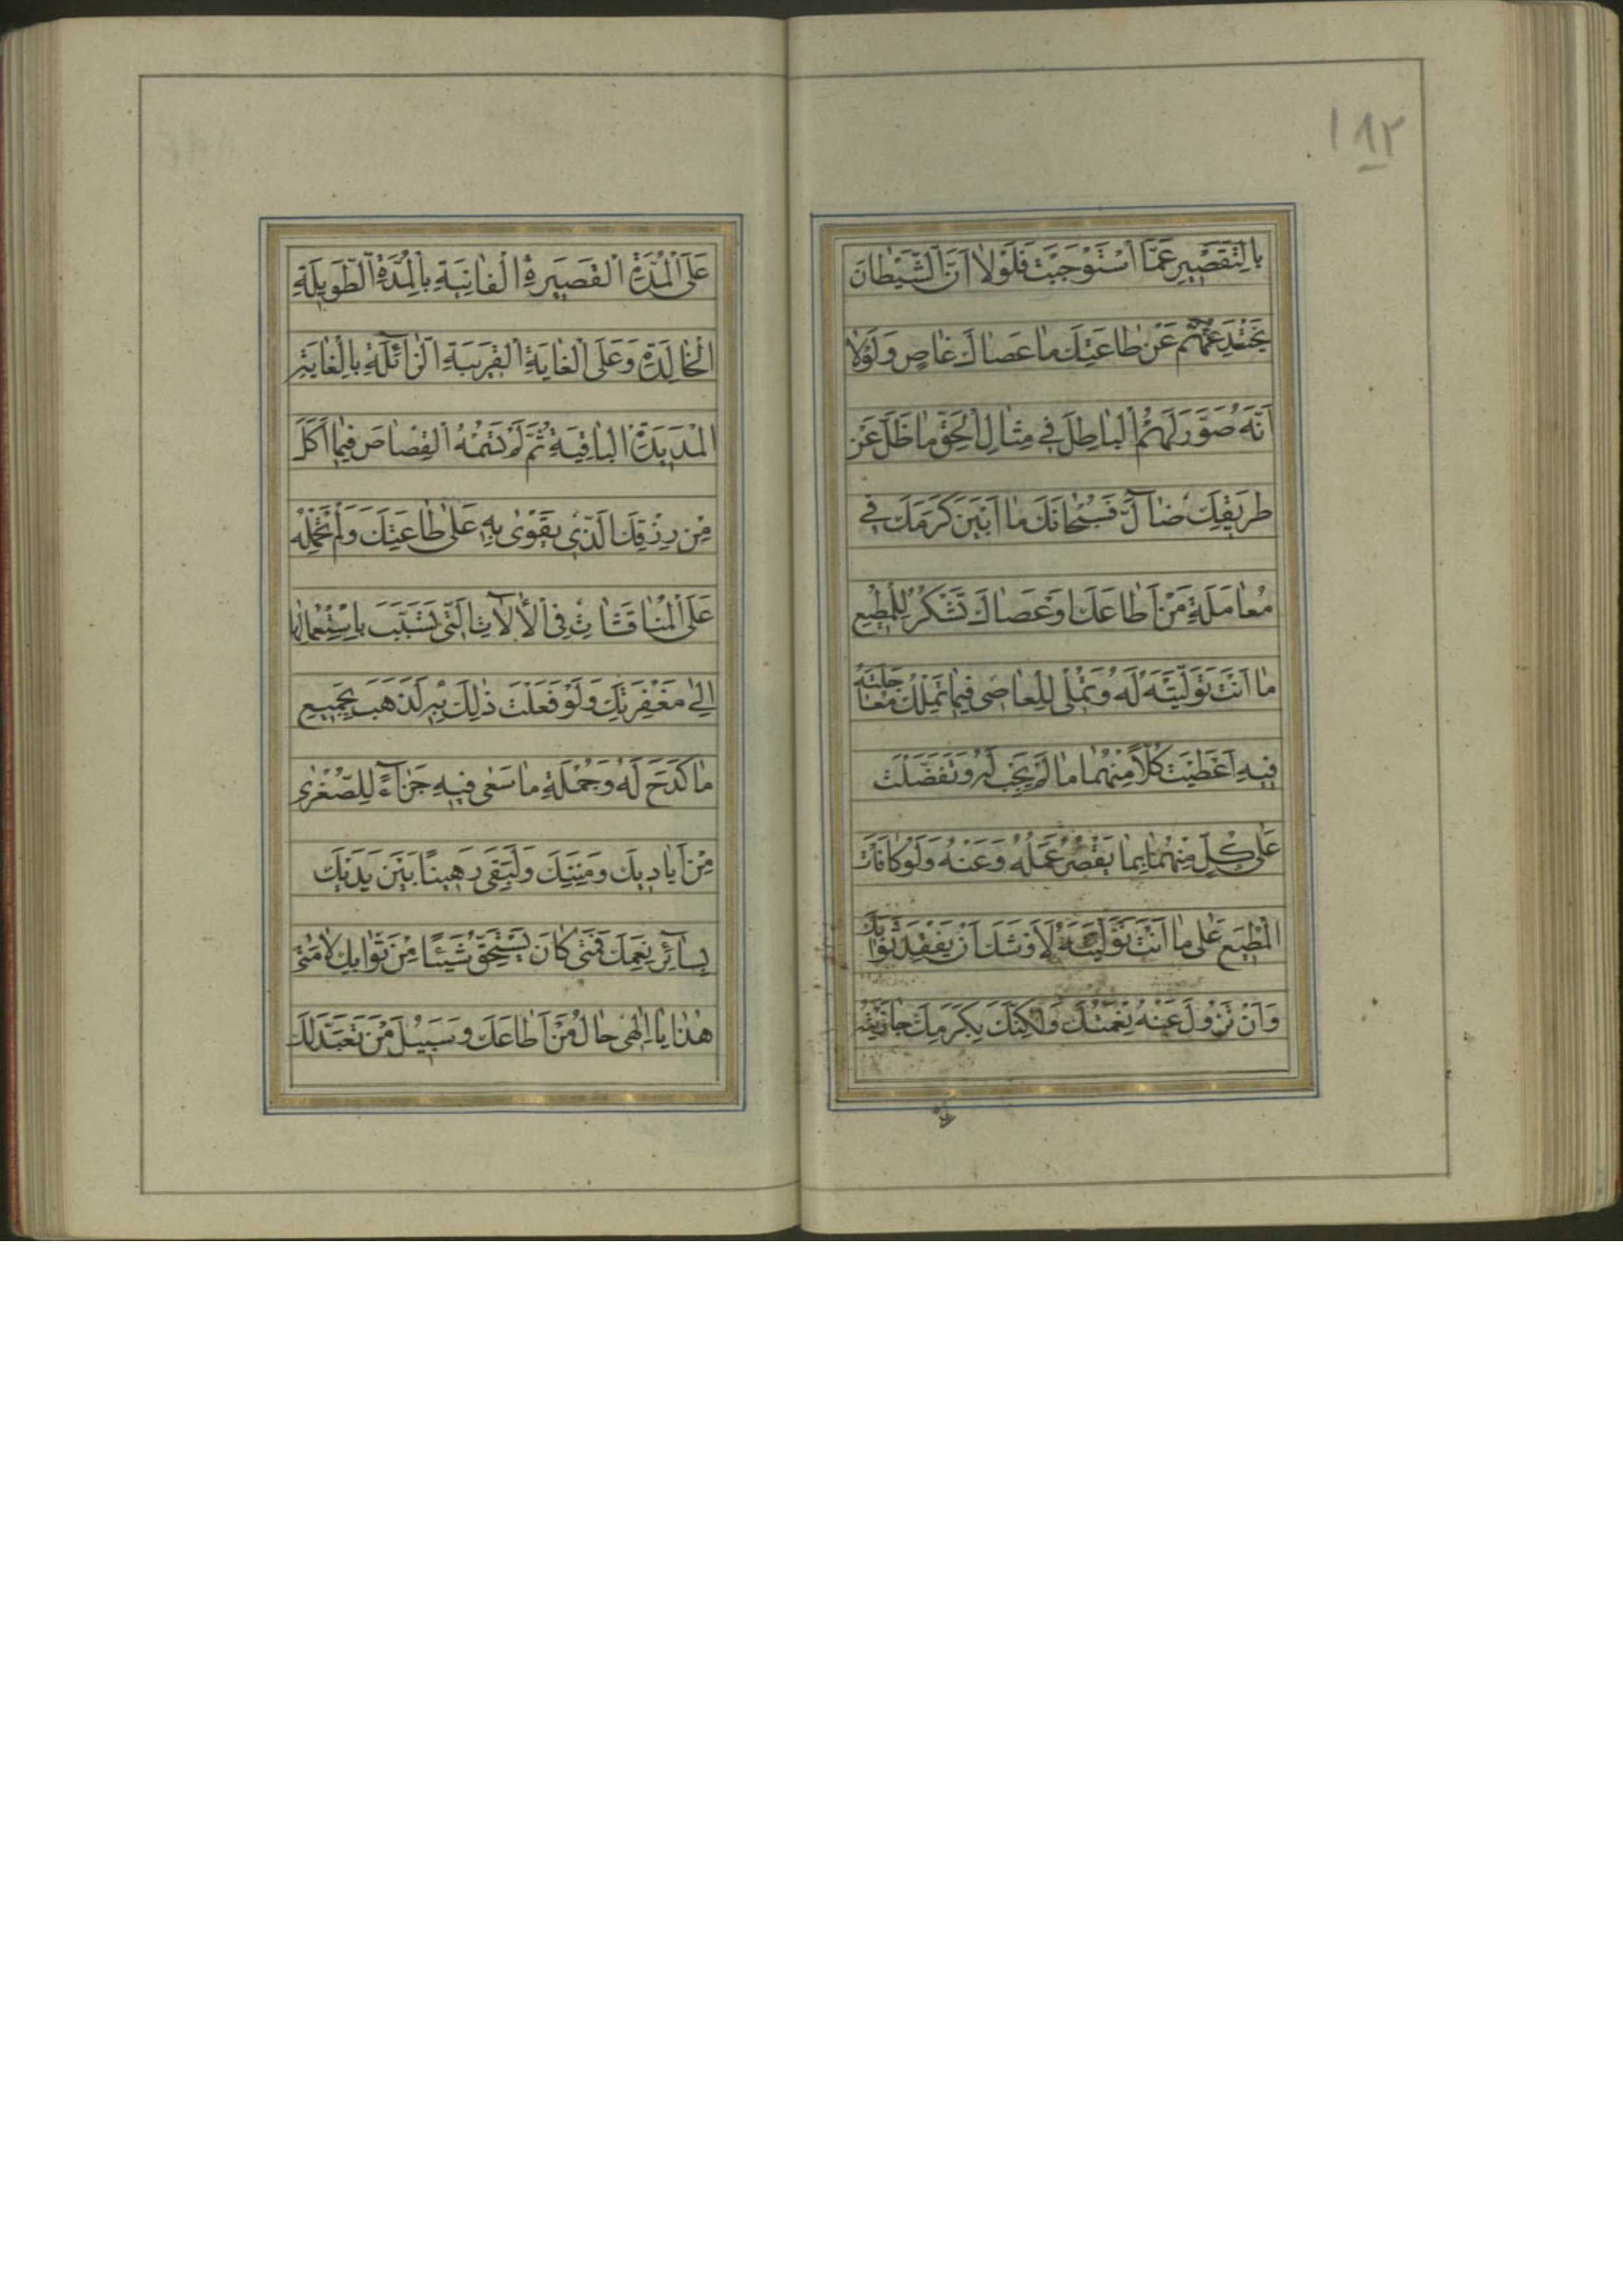 ١٨٢
بِالتَّقْصِيرِ عَمَّا اسْتَوْجَبْتَ فَلَوْلا اَنَّ الشَّيْطانَ
يَخْتَدِعُهُمْ عَنْ طاعَتِكَ ما عَصاكَ عاصٍ وَلَوْلا
اَنَّهُ صَوَّرَ لَهُمُ الْباطِلَ في مِثالِ الْحَقِّ ما ظَلَّ عَنْ
طَريقِكَ ضآلٌّ فَسُبْحانَكَ ما اَبْيَنَ كَرَمَكَ في
مُعامَلَةِ مَنْ اَطاعَكَ اَوْ عَصاكَ تَشْكُرُ لِلْمُطيعِ
ما اَنْتَ تَوَلَّيْتَهُ لَهُ وَتُمْلي لِلْعاصي فيما تَمْلِكُ مُعاجَلَتَهُ
فيهِ اَعْطَيْتَ كُلّاً مِنْهُما ما لَمْ يَجِبْ لَهُ وَتَفَضَّلْتَ
عَلى كُلٍّ مِنْهُما بِما يَقْصُرُ عَمَلُهُ وَعَنْهُ وَلَوْ كافَأْتَ
الْمُطيعَ عَلى ما اَنْتَ تَوَلَّيْتَهُ لَاَوْشَكَ اَنْ يَفْقِدَ ثَوابَكَ
وَاَنْ تَزُولَ عَنْهُ نِعْمَتُكَ وَلكِنَّكَ بِكَرَمِكَ جازَيْتَهُ
عَلَى الْمُدَّةِ الْقَصيرَةِ الْفانِيَةِ بِالْمُدَّةِ الطَّويلَةِ
الْخالِدَةِ وَعَلَى الْغايَةِ الْقَريبَةِ الزّائِلَةِ بِالْغايَةِ
الْمَديدَةِ الْباقِيَةِ ثُمَّ لَمْ تَسُمْهُ الْقِصاصَ فيما اَكَلَ
مِنْ رِزْقِكَ الَّذي يَقْوى بِهِ عَلى طاعَتِكَ وَلَمْ تَحْمِلْهُ
عَلَى الْمُناقَشاتِ فِي الْآلاتِ الَّتي تَسَبَّبَ بِاسْتِعْمالِها
اِلى مَغْفِرَتِكَ وَلَوْ فَعَلْتَ ذلِكَ بِهِ لَذَهَبَ بِجَميعِ
ما كَدَحَ لَهُ وَجُمْلَةِ ما سَعى فيهِ جَزآءً لِلصُّغْرى
مِنْ اَياديكَ وَمِنَنِكَ وَلَبَقِيَ رَهيناً بَيْنَ يَدَيْكَ
بِسآئِرِ نِعَمِكَ فَمَتى كانَ يَسْتَحِقُّ شَيْئاً مِنْ ثَوابِكَ لا مَتى
هذا يا اِلهي حالُ مَنْ اَطاعَكَ وَسَبيلُ مَنْ تَعَبَّدَ لَكَ